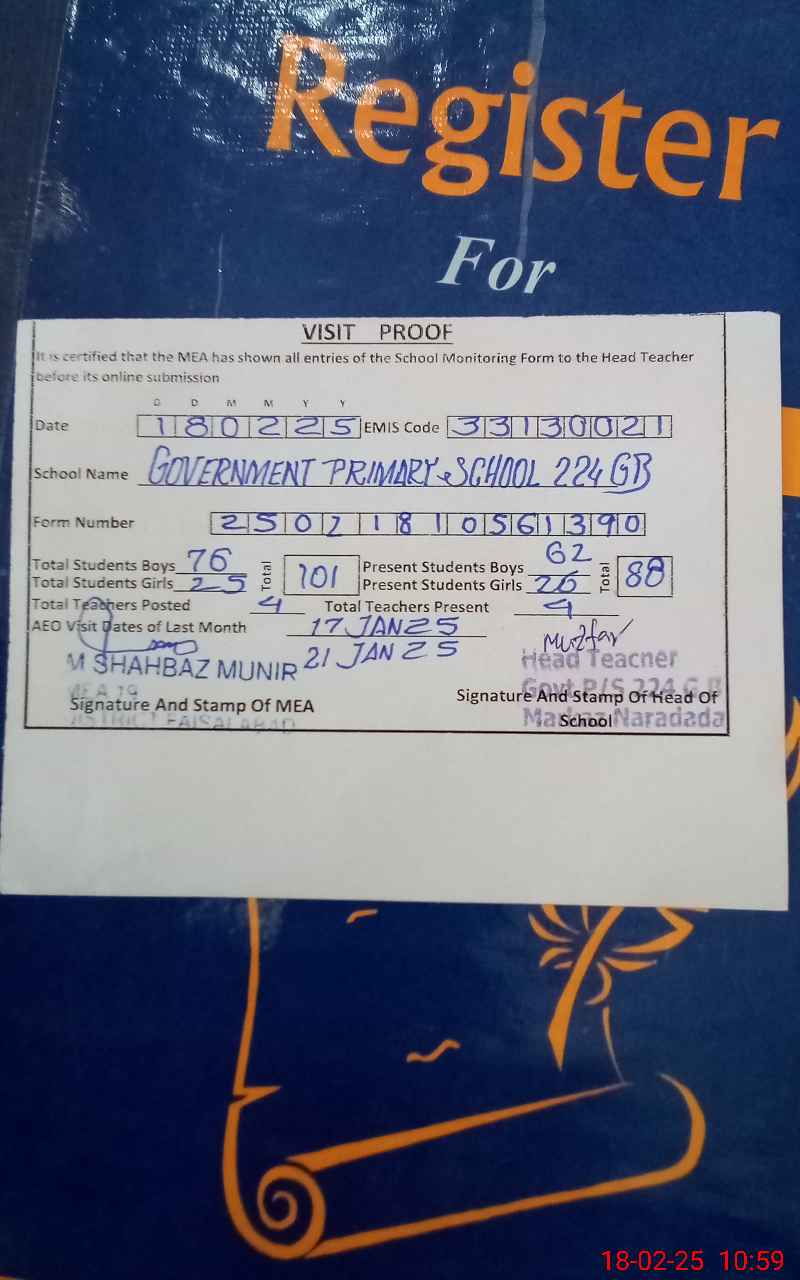 Register
For
VISIT PROOF
It is certified that the MEA has shown all entries of the School Monitoring Form to the Head Teacher
before its online submission
D D M M Y Y
Date 180225 EMIS Code 33130021
School Name GOVERNMENT PRIMARY SCHOOL 224 GB
Form Number 25021810561390
Total Students Boys 76 Total 101 Present Students Boys 62 Total 88
Total Students Girls 25 Present Students Girls 26
Total Teachers Posted 4 Total Teachers Present 4
AEO Visit Dates of Last Month 17 JAN 25
21 JAN 25
M SHAHBAZ MUNIR
MEA 19
Signature And Stamp Of MEA
DISTRICT FAISALABAD
Head Teacher
Govt P/S 224 G.B
Signature And Stamp Of Head Of
School
Markaz Naradada
18-02-25 10:59